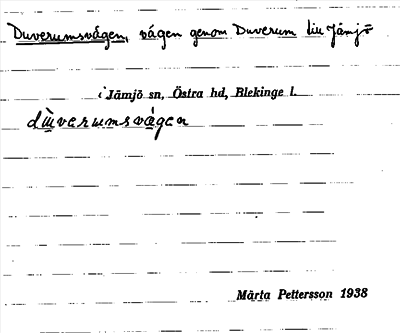 Duverumsvägen, vägen genom Duverum till Jämjö
i Jämjö sn, Östra hd, Blekinge l.
dùverumsvä́gen
Märta Pettersson 1938